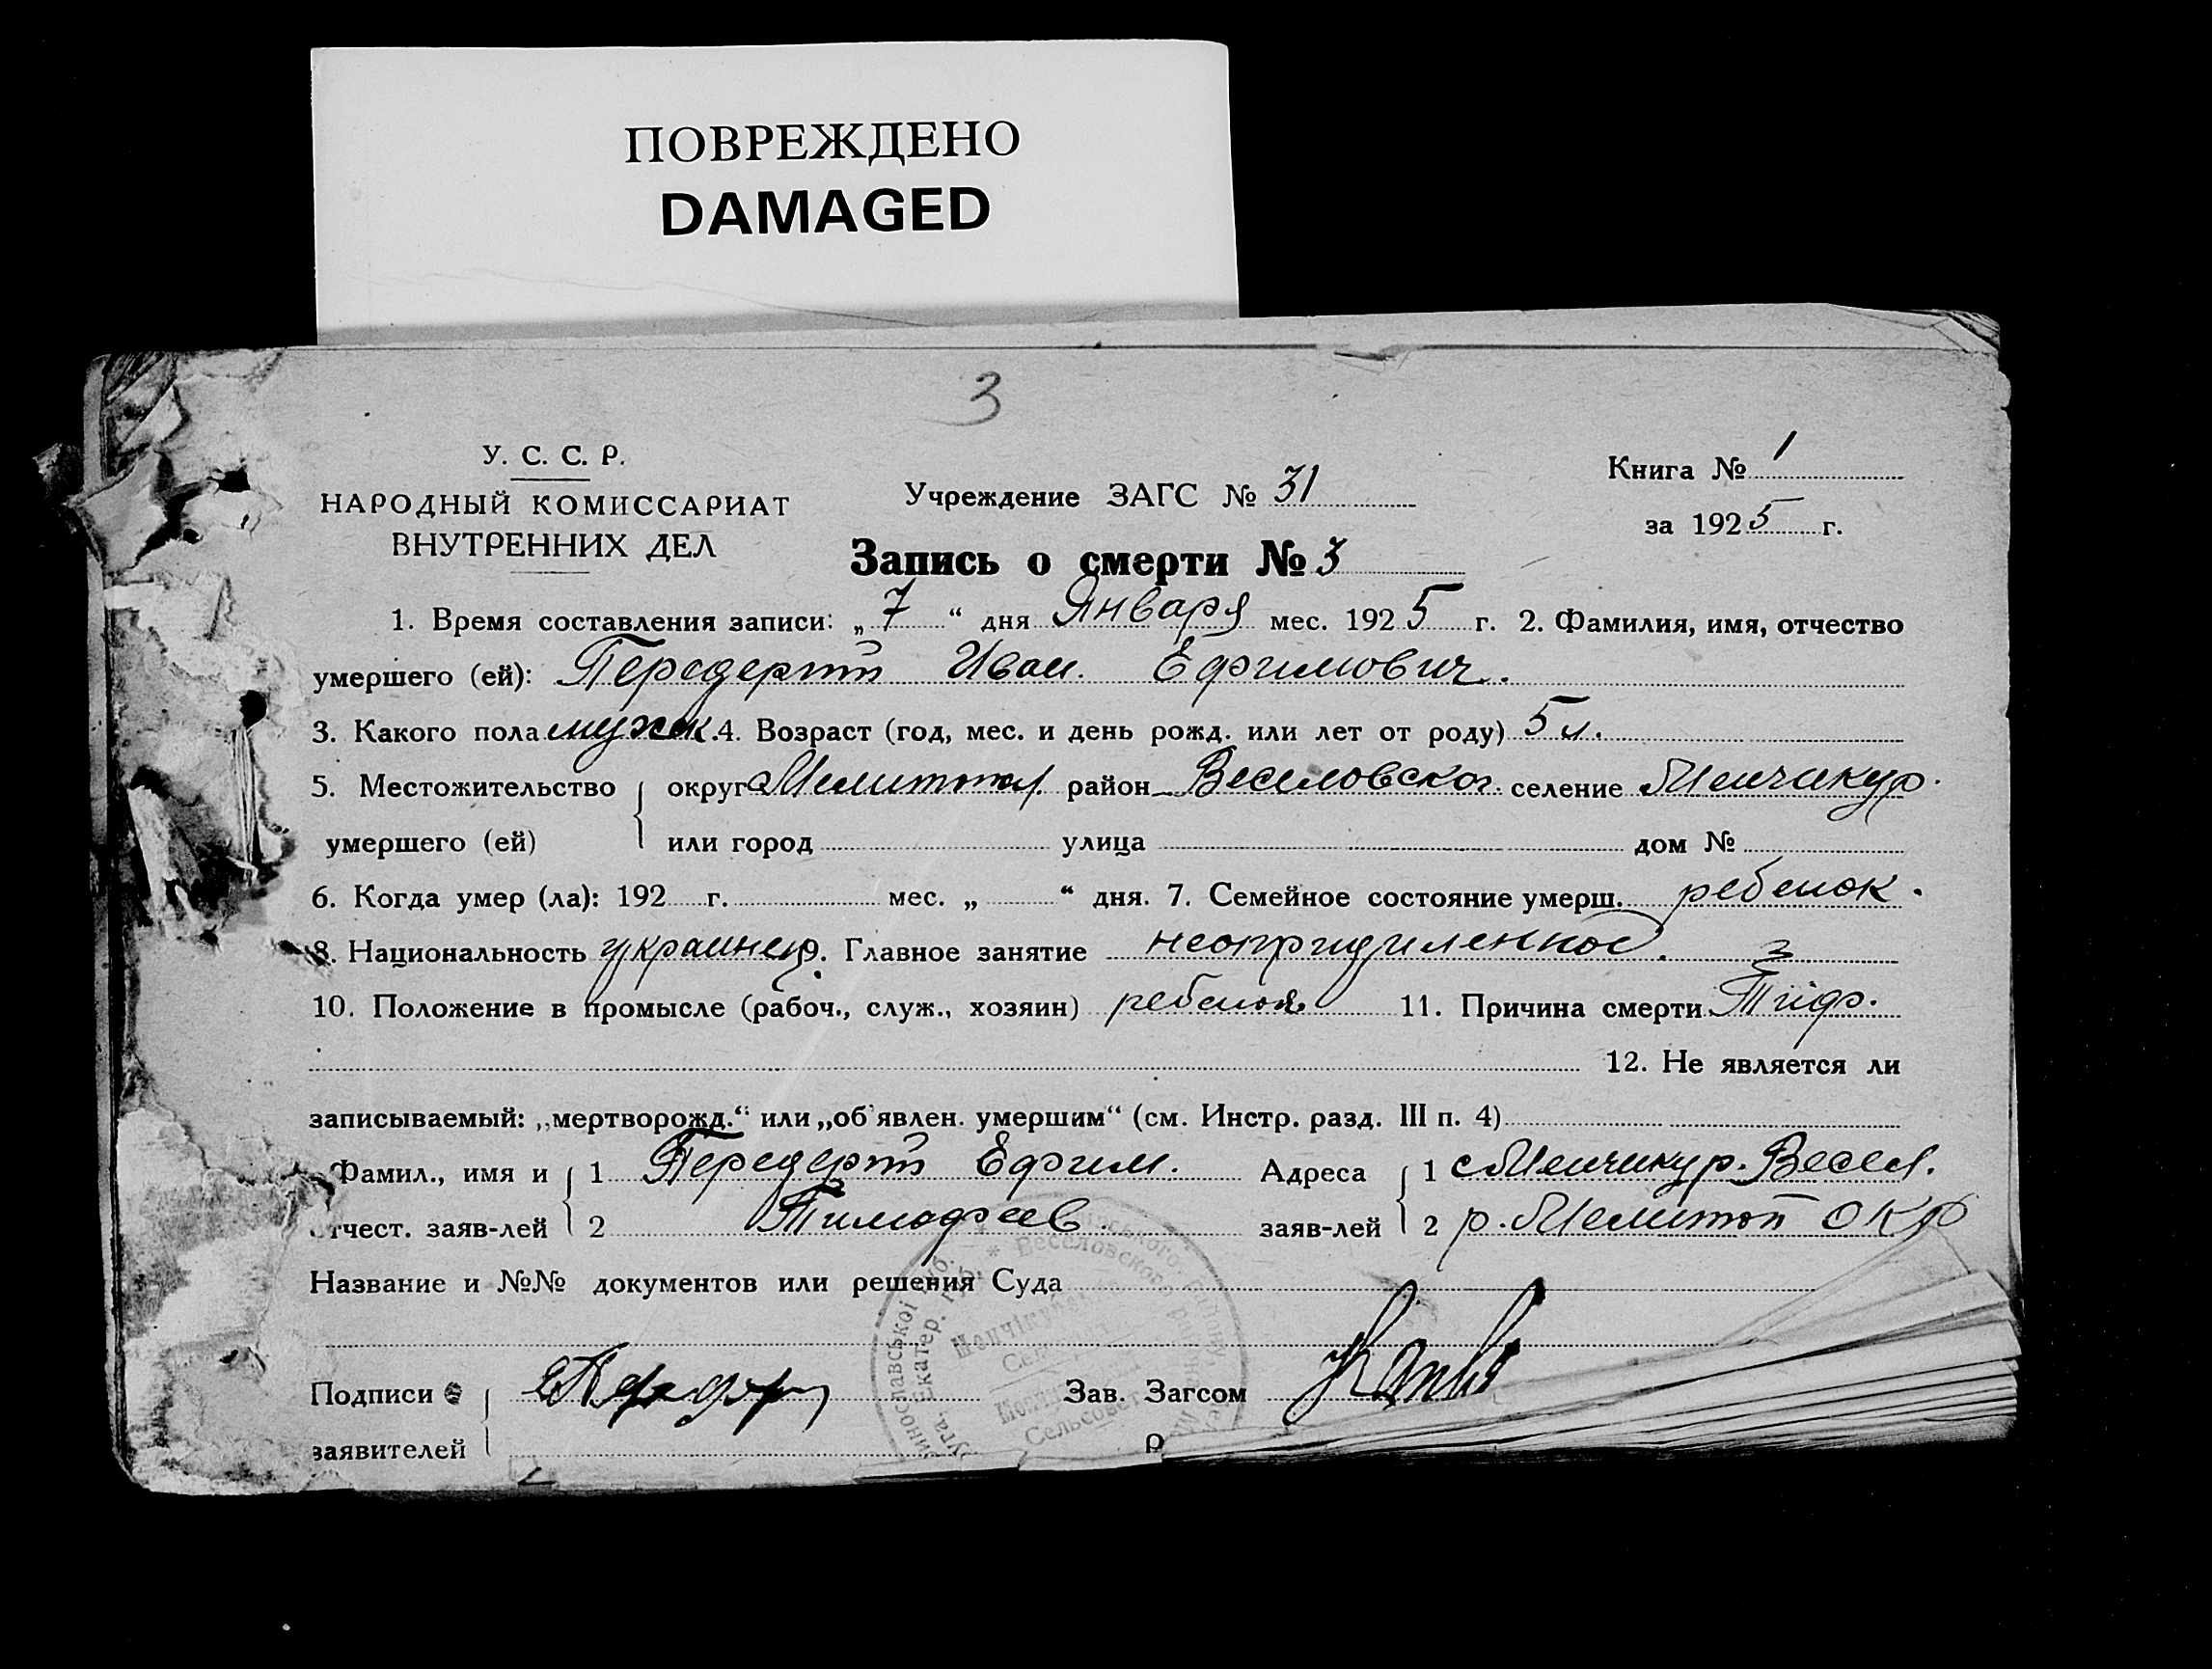 ПОВРЕЖДЕНО
DAMAGED
3
У. С. С. Р.
НАРОДНЫЙ КОМИССАРИАТ
ВНУТРЕННИХ ДЕЛ
Учреждение ЗАГС № 31
Книга № 1
за 1925 г.
Запись о смерти № 3
1. Время составления записи: „7“ дня Января мес. 1925 г. 2. Фамилия, имя, отчество
умершего (ей): Передерий Иван Ефимович.
3. Какого пола мужск. 4. Возраст (год, мес. и день рожд. или лет от роду) 5 л.
5. Местожительство округ Мелитоп. район Веселовског. селение Менчикур.
умершего (ей) или город улица дом №
6. Когда умер (ла): 192 г. мес. „ “ дня. 7. Семейное состояние умерш. ребенок.
8. Национальность украинец 9. Главное занятие
10. Положение в промысле (рабоч., служ., хозяин) ребенок 11. Причина смерти Тиф.
12. Не является ли
записываемый: „мертворожд.“ или „об'явлен. умершим“ (см. Инстр. разд. III п. 4)
Фамил., имя и 1 Передерий Ефим. Адреса 1 с Менчикур. Весел.
отчест. заяв-лей 2 Тимофеев заяв-лей 2 р. Мелитоп окр
Название и №№ документов или решения Суда
Подписи Зав. Загсом
заявителей